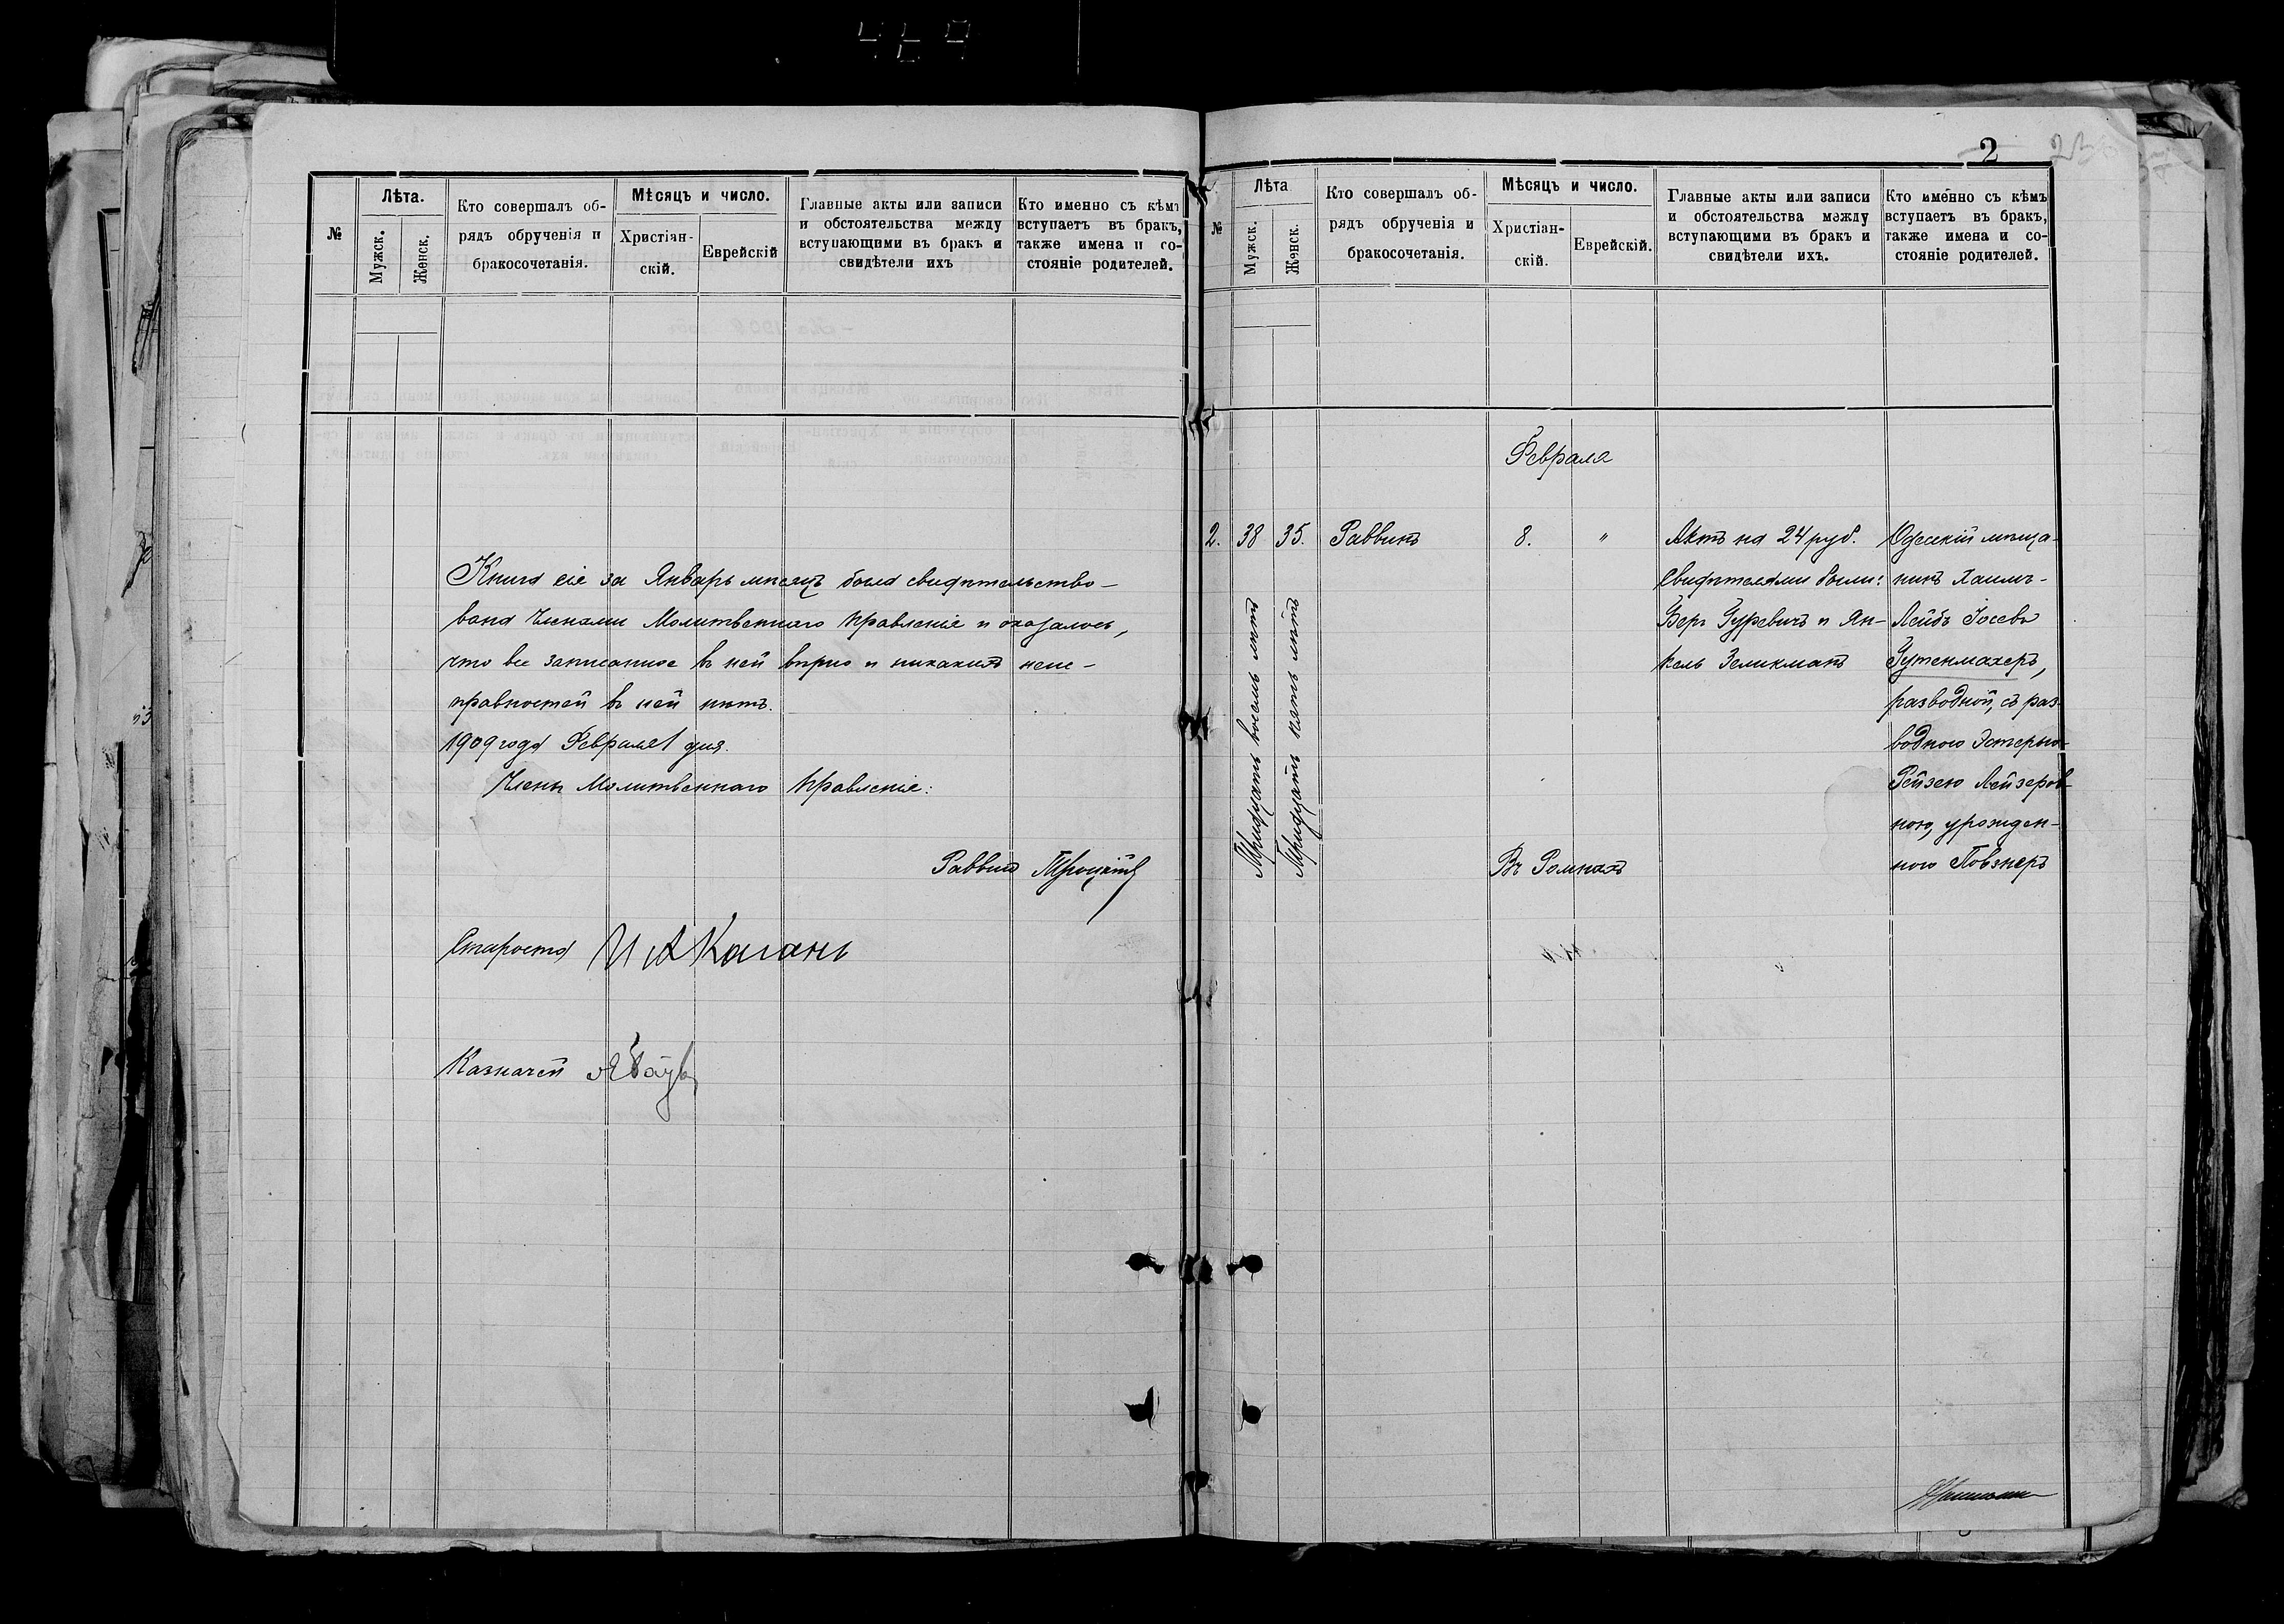 №
Лѣта.
Мужск.
Женск.
Кто совершалъ об-
рядъ обрученія и
бракосочетанія.
Мѣсяцъ и число.
Христіан-
скій.
Еврейскій
Главные акты или записи
и обстоятельства между
вступающими въ бракъ и
свидѣтели ихъ
Кто именно съ кѣмъ
вступаетъ въ бракъ,
также имена и со-
стояніе родителей.
Книга сія за Январь мѣсяцъ была свидѣтельство-
вана Членами Молитвеннаго Правленія и оказалось,
что все записанное въ ней вѣрно и никакихъ неис-
правностей въ ней нѣтъ.
1909 года Февраля 1 дня.
Члены Молитвеннаго Правленія:
Раввинъ
Староста И А Каганъ
Казначей
2
№
Лѣта
Мужск.
Женск.
Кто совершалъ об-
рядъ обрученія и
бракосочетанія.
Мѣсяцъ и число.
Христіан-
скій.
Еврейскій.
Главные акты или записи
и обстоятельства между
вступающими въ бракъ и
свидѣтели ихъ.
Кто именно съ кѣмъ
вступаетъ въ бракъ,
также имена и со-
стояніе родителей.
Февраля
2.
38
Тридцать восемь лѣтъ
35.
Тридцать пять лѣтъ
Раввинъ
8.
"
Въ Ромнахъ
Актъ на 24 руб.
Свидѣтелями были:
Беръ Гуревичъ и Ян-
кель Зеликманъ
Одесскій мѣща-
нинъ Хаимъ-
Лейбъ Іосевъ
Гутенмахеръ,
разводной, съ раз-
водною Эстерью-
Рейзею Лейзеров-
ною, урожден-
ною Повзнеръ